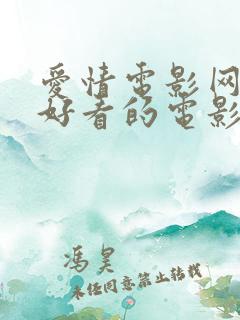 爱情電影网
好看的電影
馮昊
未经同意禁止转载